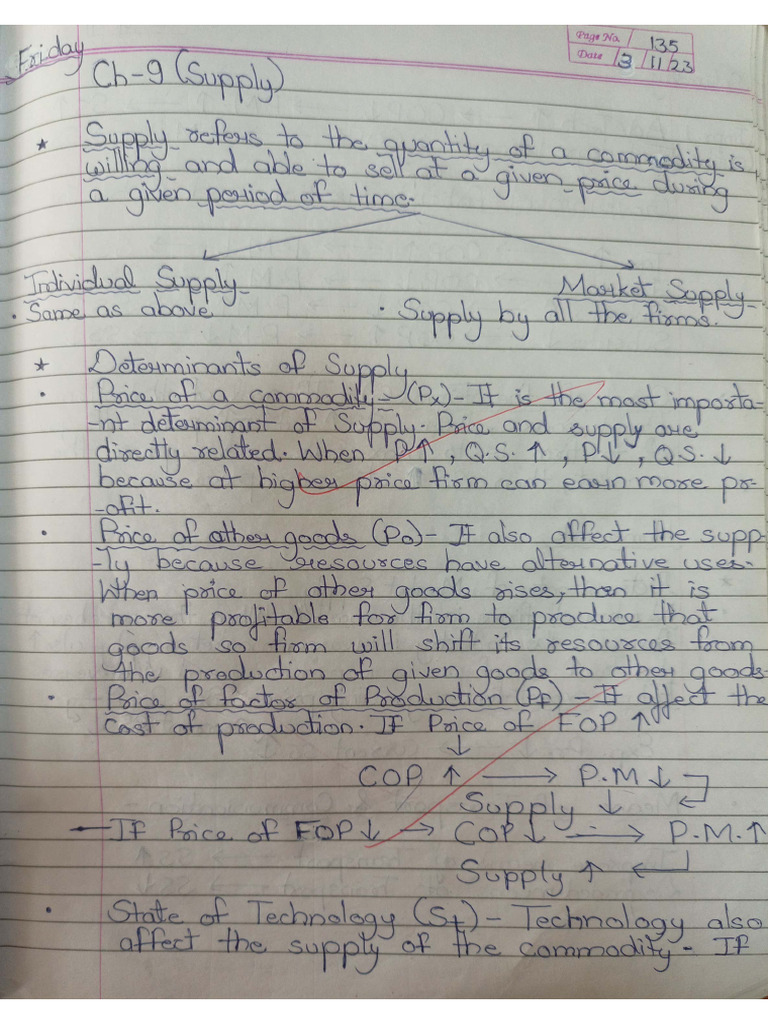 Friday
Page No. 135
Date 3/11/23
Ch-9 (Supply)
* Supply refers to the quantity of a commodity is
willing and able to sell at a given price during
a given period of time.
Individual Supply Market Supply
• Same as above • Supply by all the firms.
* Determinants of Supply
• Price of a commodity - (Px) - It is the most importa-
-nt determinant of Supply. Price and supply are
directly related. When P↑, Q.S. ↑, P↓, QS. ↓
because at higher price firm can earn more pr-
-ofit.
• Price of other goods (Po) - It also affect the supp-
-ly because resources have alternative uses.
When price of other goods rises, then it is
more profitable for firm to produce that
goods so firm will shift its resources from
the production of given goods to other goods.
• Price of factor of Production (Pf) - It affect the
cost of production. If Price of FOP ↑
↓
COP ↑ → P.M ↓
Supply ↓
- If Price of FOP ↓ → COP ↓ → P.M. ↑
Supply ↑ ←
• State of Technology (St) - Technology also
affect the supply of the commodity - If